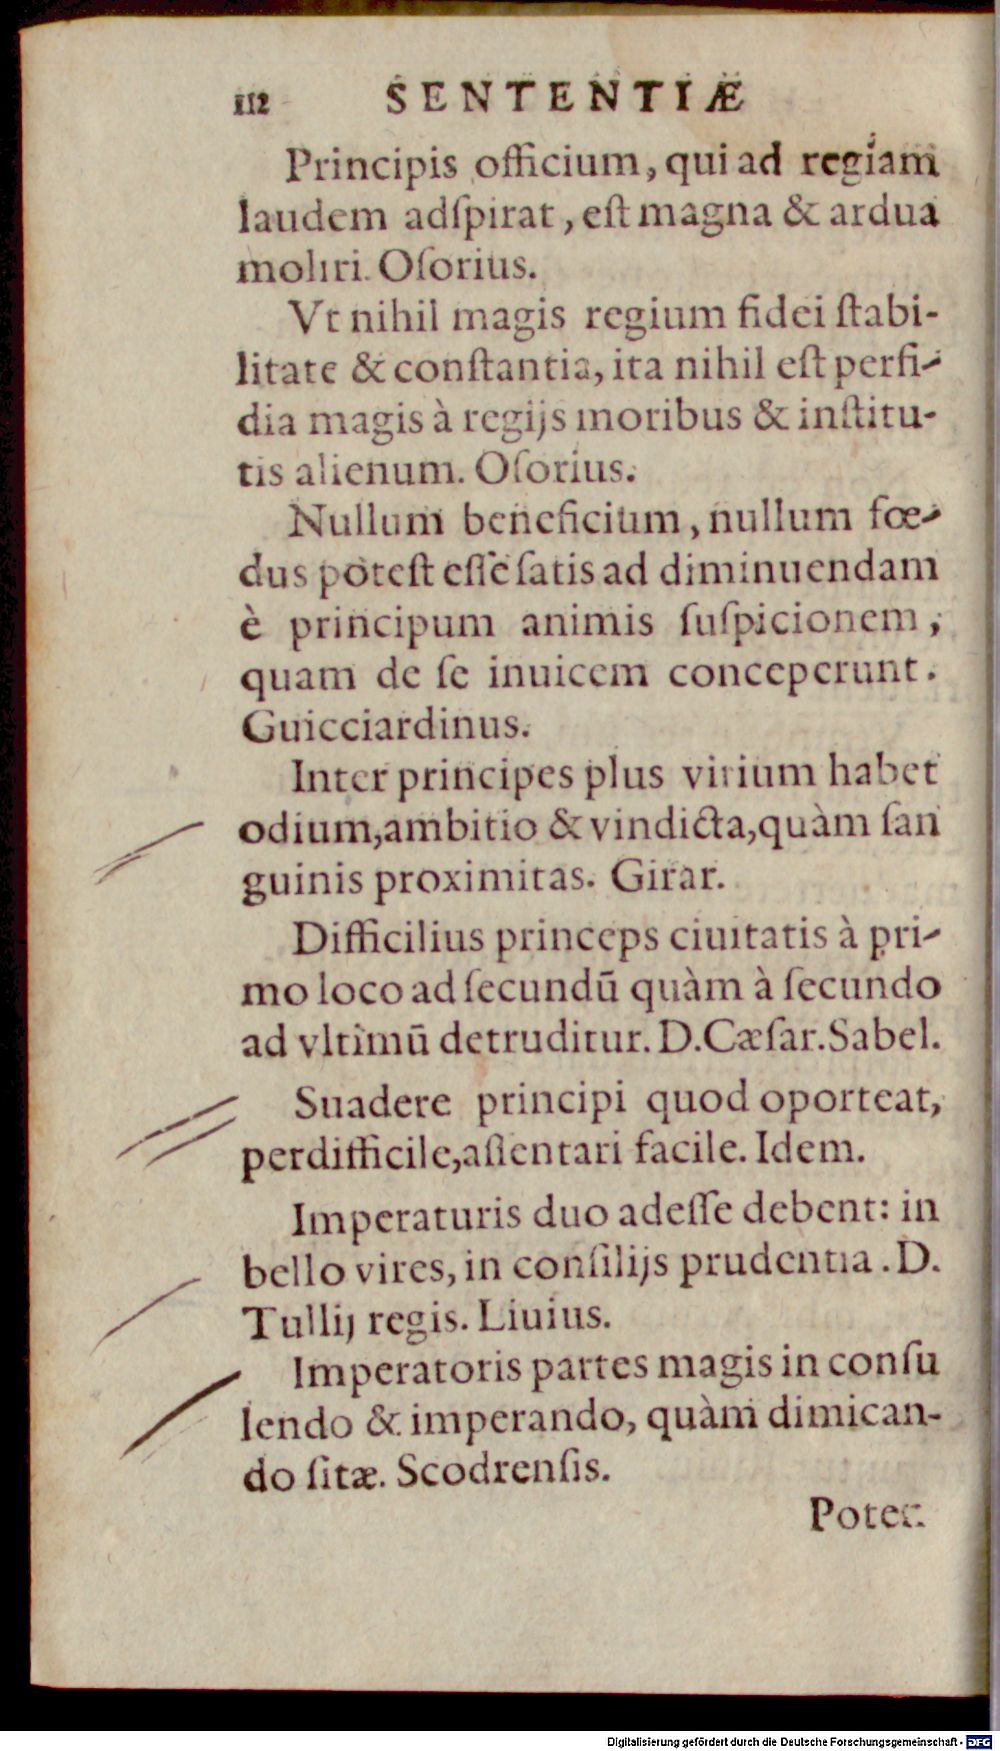 112 SENTENTIÆ
Principis officium, qui ad regiam
laudem adſpirat, eſt magna & ardua
moliri. Oſorius.
Vt nihil magis regium fidei ſtabi-
litate & conſtantia, ita nihil eſt perfi-
dia magis à regijs moribus & inſtitu-
tis alienum. Oſorius.
Nullum beneficium, nullum fœ-
dus poteſt eſſe ſatis ad diminuendam
è principum animis ſuſpicionem,
quam de ſe inuicem conceperunt.
Guicciardinus.
Inter principes plus virium habet
odium, ambitio & vindicta, quàm ſan
guinis proximitas. Girar.
Difficilius princeps ciuitatis à pri-
mo loco ad ſecundū quàm à ſecundo
ad vltimū detruditur. D. Cæſar. Sabel.
Suadere principi quod oporteat,
perdifficile, aſſentari facile. Idem.
Imperaturis duo adeſſe debent: in
bello vires, in conſilijs prudentia. D.
Tullij regis. Liuius.
Imperatoris partes magis in conſu
lendo & imperando, quàm dimican-
do ſitæ. Scodrenſis.
Digitalisierung gefördert durch die Deutsche Forschungsgemeinschaft - DFG